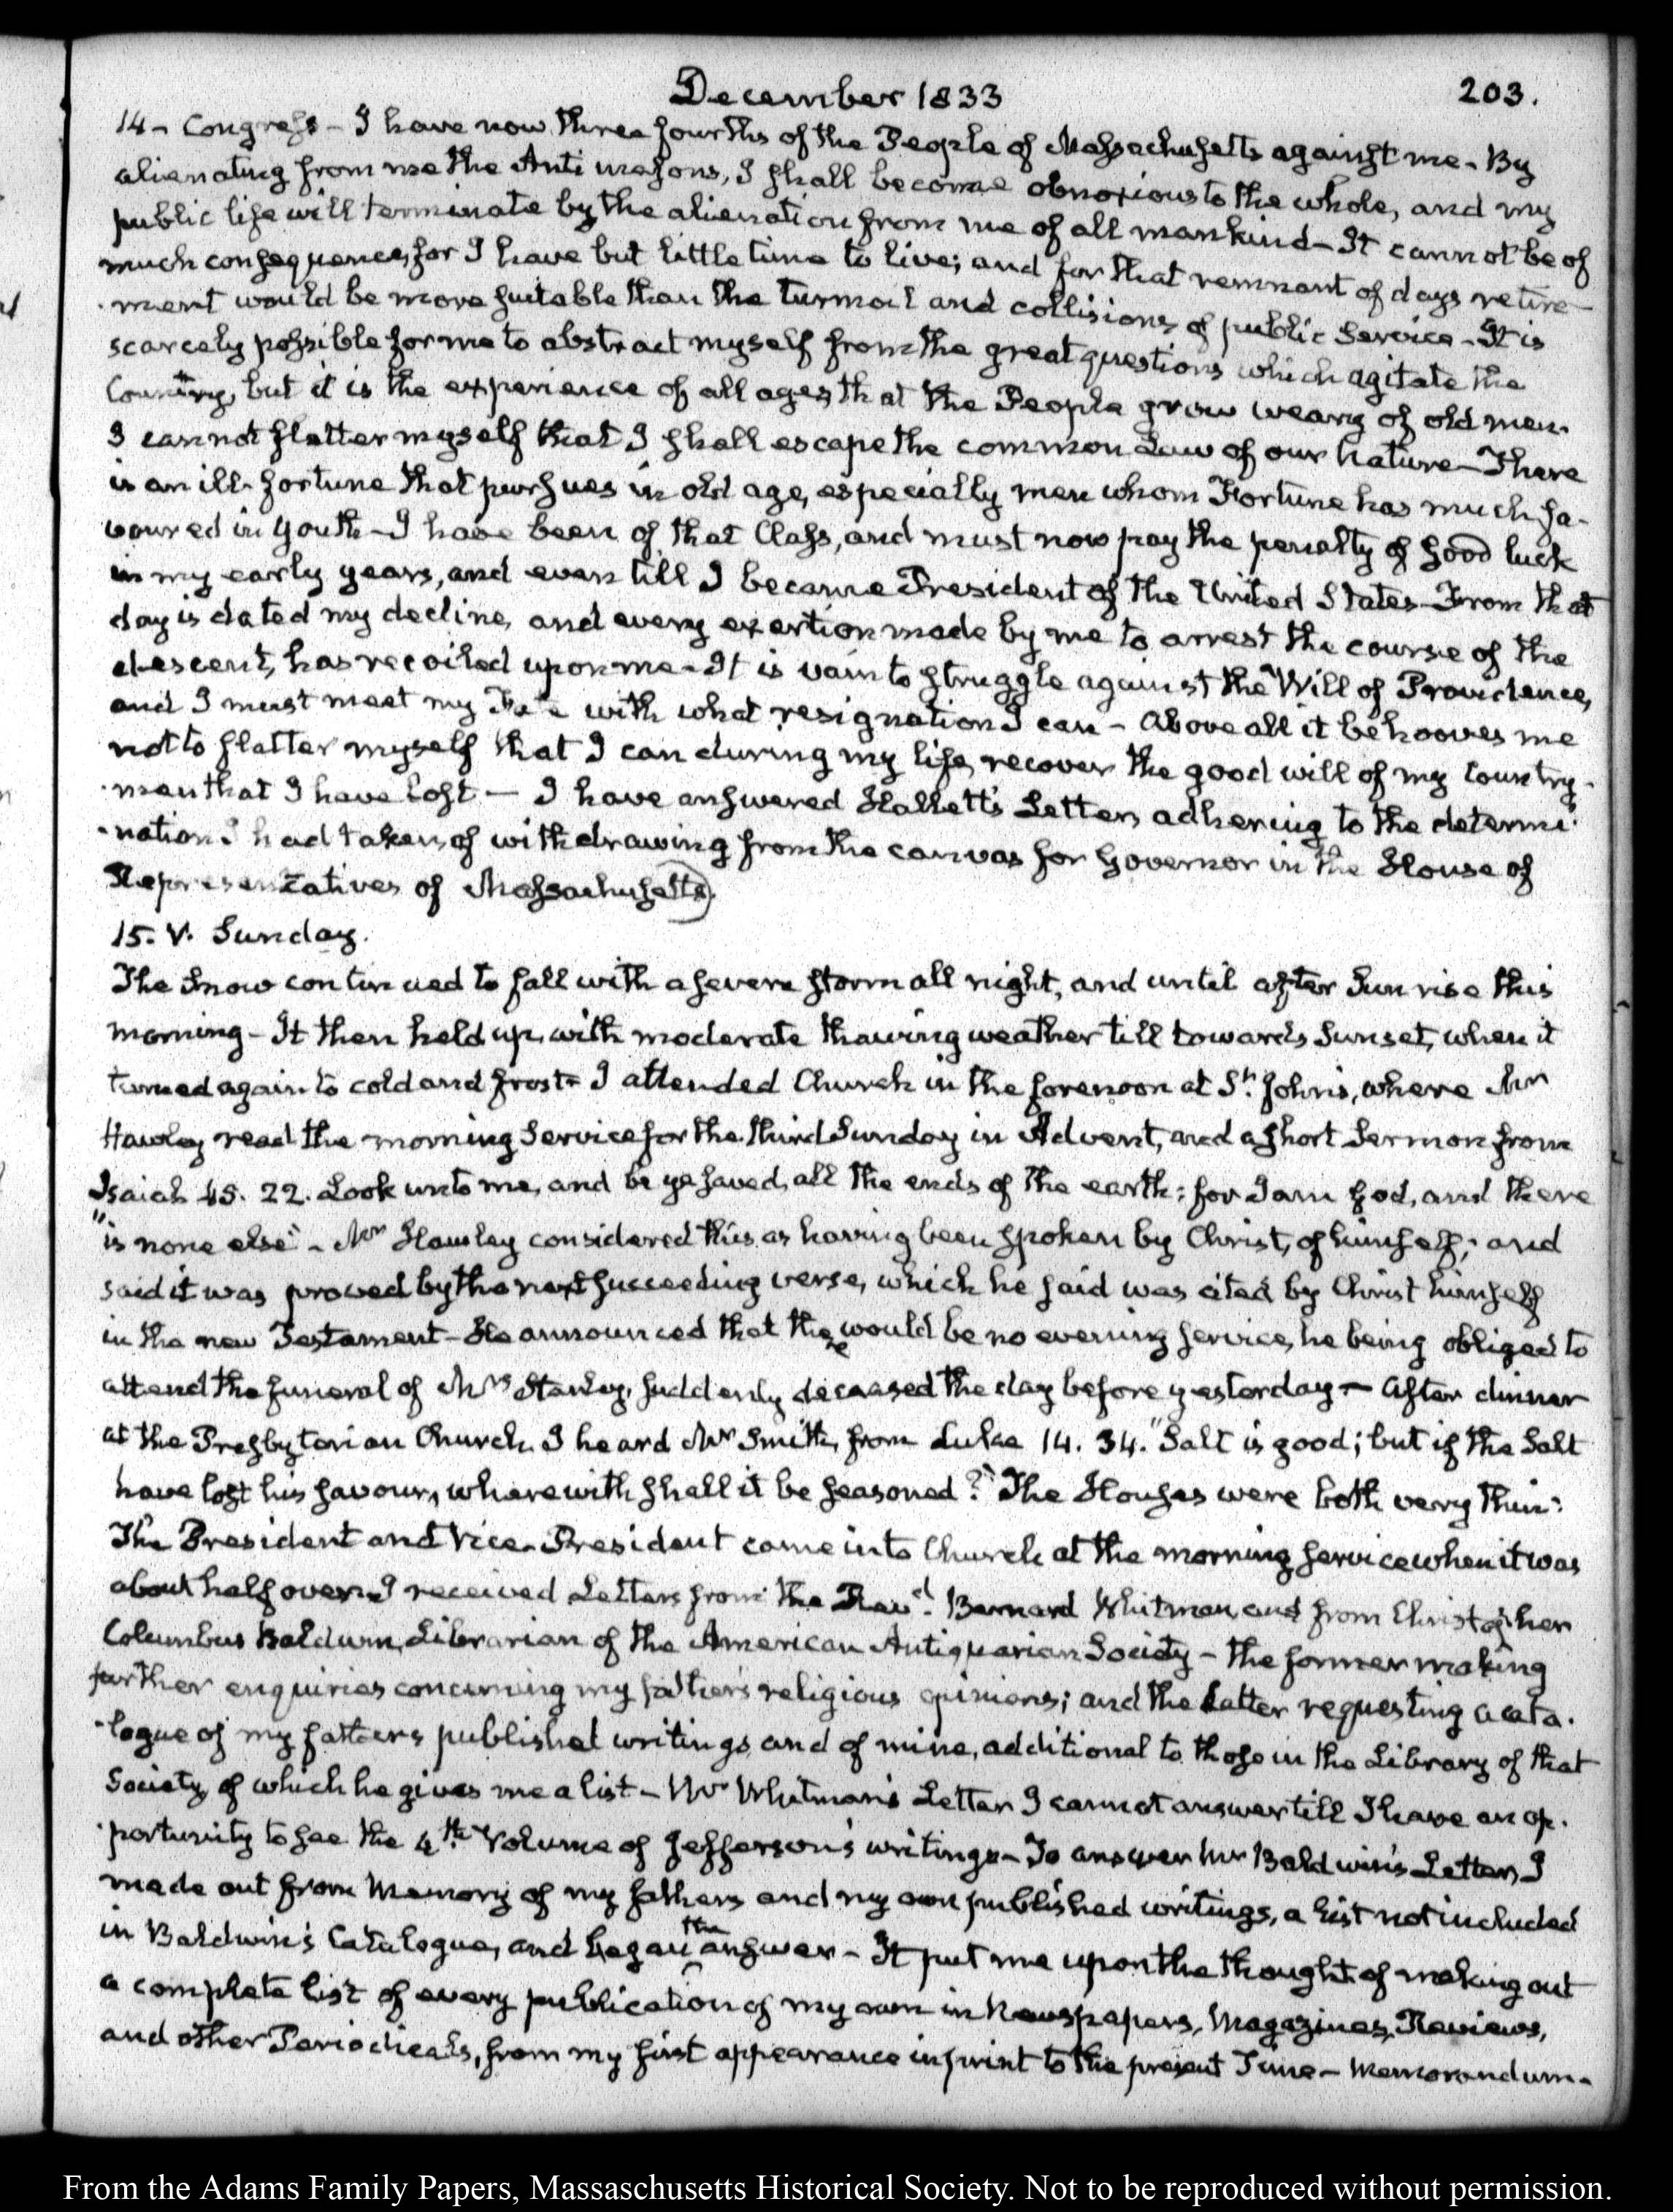 December 1833
203.
14 - Congress - I have now three fourths of the People of Massachusetts against me - By
alienating from me the Anti masons, I shall become obnoxious to the whole, and my
public life will terminate by the alienation from me of all mankind - It cannot be of
much consequence, for I have but little time to live; and for that remnant of days retire-
-ment would be more suitable than the turmoil and collisions of public Service - It is
scarcely possible for me to abstract myself from the great questions which agitate the
Country, but it is the experience of all ages that the People grow weary of old men.
I cannot flatter myself that I shall escape the common Law of our nature - There
is an ill-fortune that pursues in old age, especially men whom Fortune has much fa-
voured in Youth - I have been of that Class, and must now pay the penalty of good luck
in my early years, and even till I became President of the United States - From that
day is dated my decline, and every exertion made by me to arrest the course of the
descent, has recoiled upon me - It is vain to struggle against the Will of Providence,
and I must meet my Fate with what resignation I can - Above all it behooves me
not to flatter myself that I can during my life, recover the good will of my Country-
-men that I have lost — I have answered Hallett's Letter, adhering to the determi-
-nation I had taken, of withdrawing from the canvas for Governor in the House of
Representatives of Massachusetts.
15. V. Sunday.
The Snow continued to fall with a severe storm all night, and until after Sun rise this
morning - It then held up, with moderate thawing weather till towards Sunset, when it
turned again to cold and frost - I attended Church in the forenoon at St. John's, where Mr
Hawley read the morning Service for the third Sunday in Advent, and a short Sermon from
Isaiah 45. 22. Look unto me, and be ye saved, all the ends of the earth: for I am God, and there
"is none else" - Mr Hawley considered this as having been spoken by Christ, of himself; and
said it was proved by the next succeeding verse, which he said was cited by Christ himself
in the new Testament - He announced that there would be no evening service, he being obliged to
attend the funeral of Mrs Stanley, suddenly deceased the day before yesterday - After dinner
at the Presbyterian Church, I heard Mr Smith, from Luke 14. 34. "Salt is good; but if the Salt
have lost his savour, wherewith shall it be seasoned?" The Houses were both very thin:
The President and Vice-President came into Church at the morning service when it was
about half over - I received Letters from the Revd. Bernard Whitman, and from Christopher
Columbus Baldwin, Librarian of the American Antiquarian Society - the former making
further enquiries concerning my father's religious opinions; and the latter requesting a cata-
-logue of my fathers published writings, and of mine, additional to those in the Library of that
Society, of which he gives me a list - Mr Whitman's Letter I cannot answer till I have an op-
-portunity to see the 4th. Volume of Jefferson's writings - To answer Mr Baldwin's Letter, I
made out from Memory of my fathers and my own published writings, a list not included
in Baldwin's Catalogue, and began the answer - It put me upon the thought of making out
a complete list of every publication of my own in Newspapers, Magazines, Reviews,
and other Periodicals, from my first appearance in print to the present Time - Memorandum.
From the Adams Family Papers, Massaschusetts Historical Society. Not to be reproduced without permission.